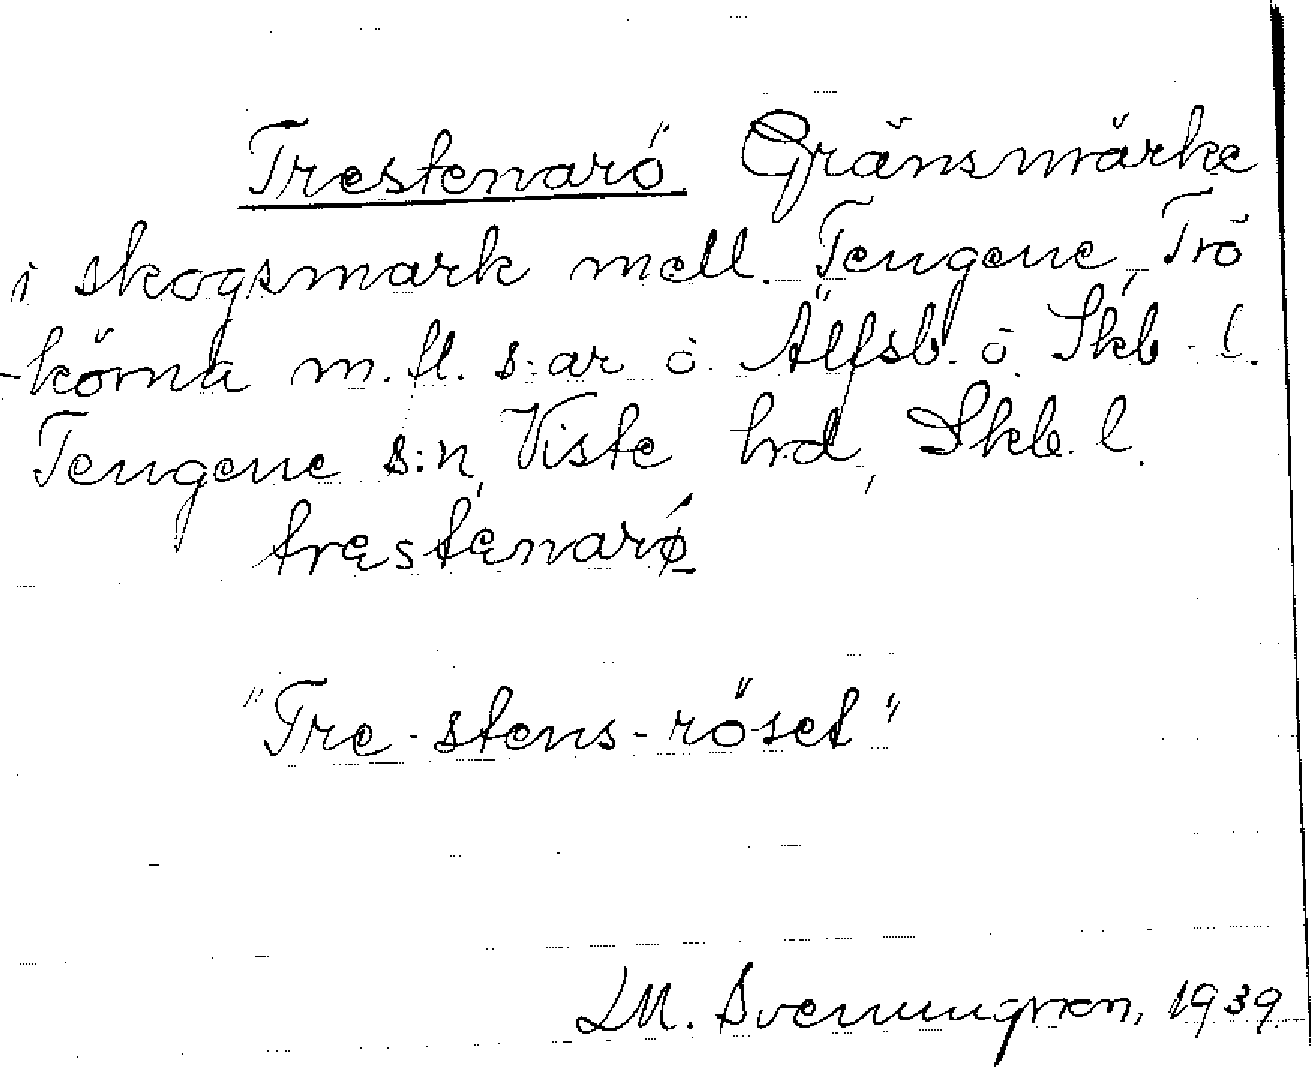 Trestenarö Gränsmärke
i skogsmark mell. Tengene, Trö
-körna m. fl. s:ar o. Älfsb. o. Skb. l.
Tengene s:n, Viste hrd, Skb. l.
træstænarø̱
"Tre-stens-röset"
LM. Svenungsson, 1939